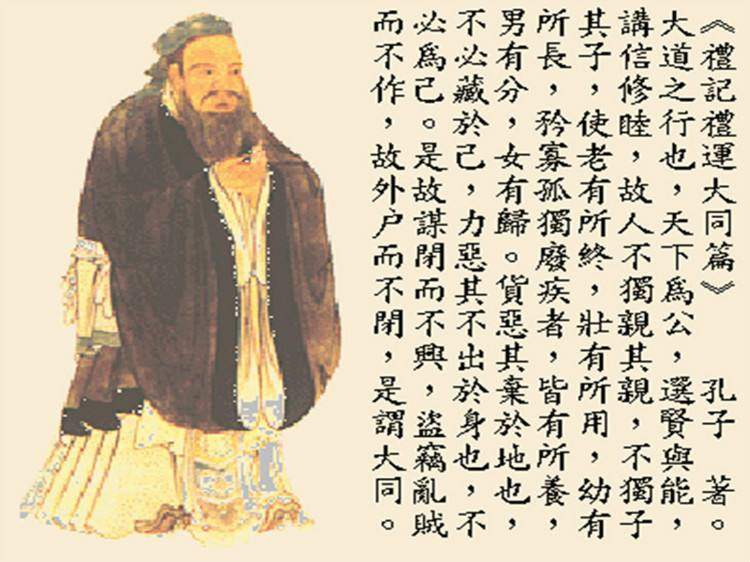 《禮記禮運大同篇》 孔子 著。
大道之行也，天下爲公，選賢與能，
講信修睦，故人不獨親其親，不獨子
其子，使老有所終，壯有所用，幼有
所長，矜寡孤獨廢疾者，皆有所養，
男有分，女有歸。貨惡其棄於地也，
不必藏於己，力惡其不出於身也，不
必爲己。是故謀閉而不興，盜竊亂賊
而不作，故外户而不閉，是謂大同。